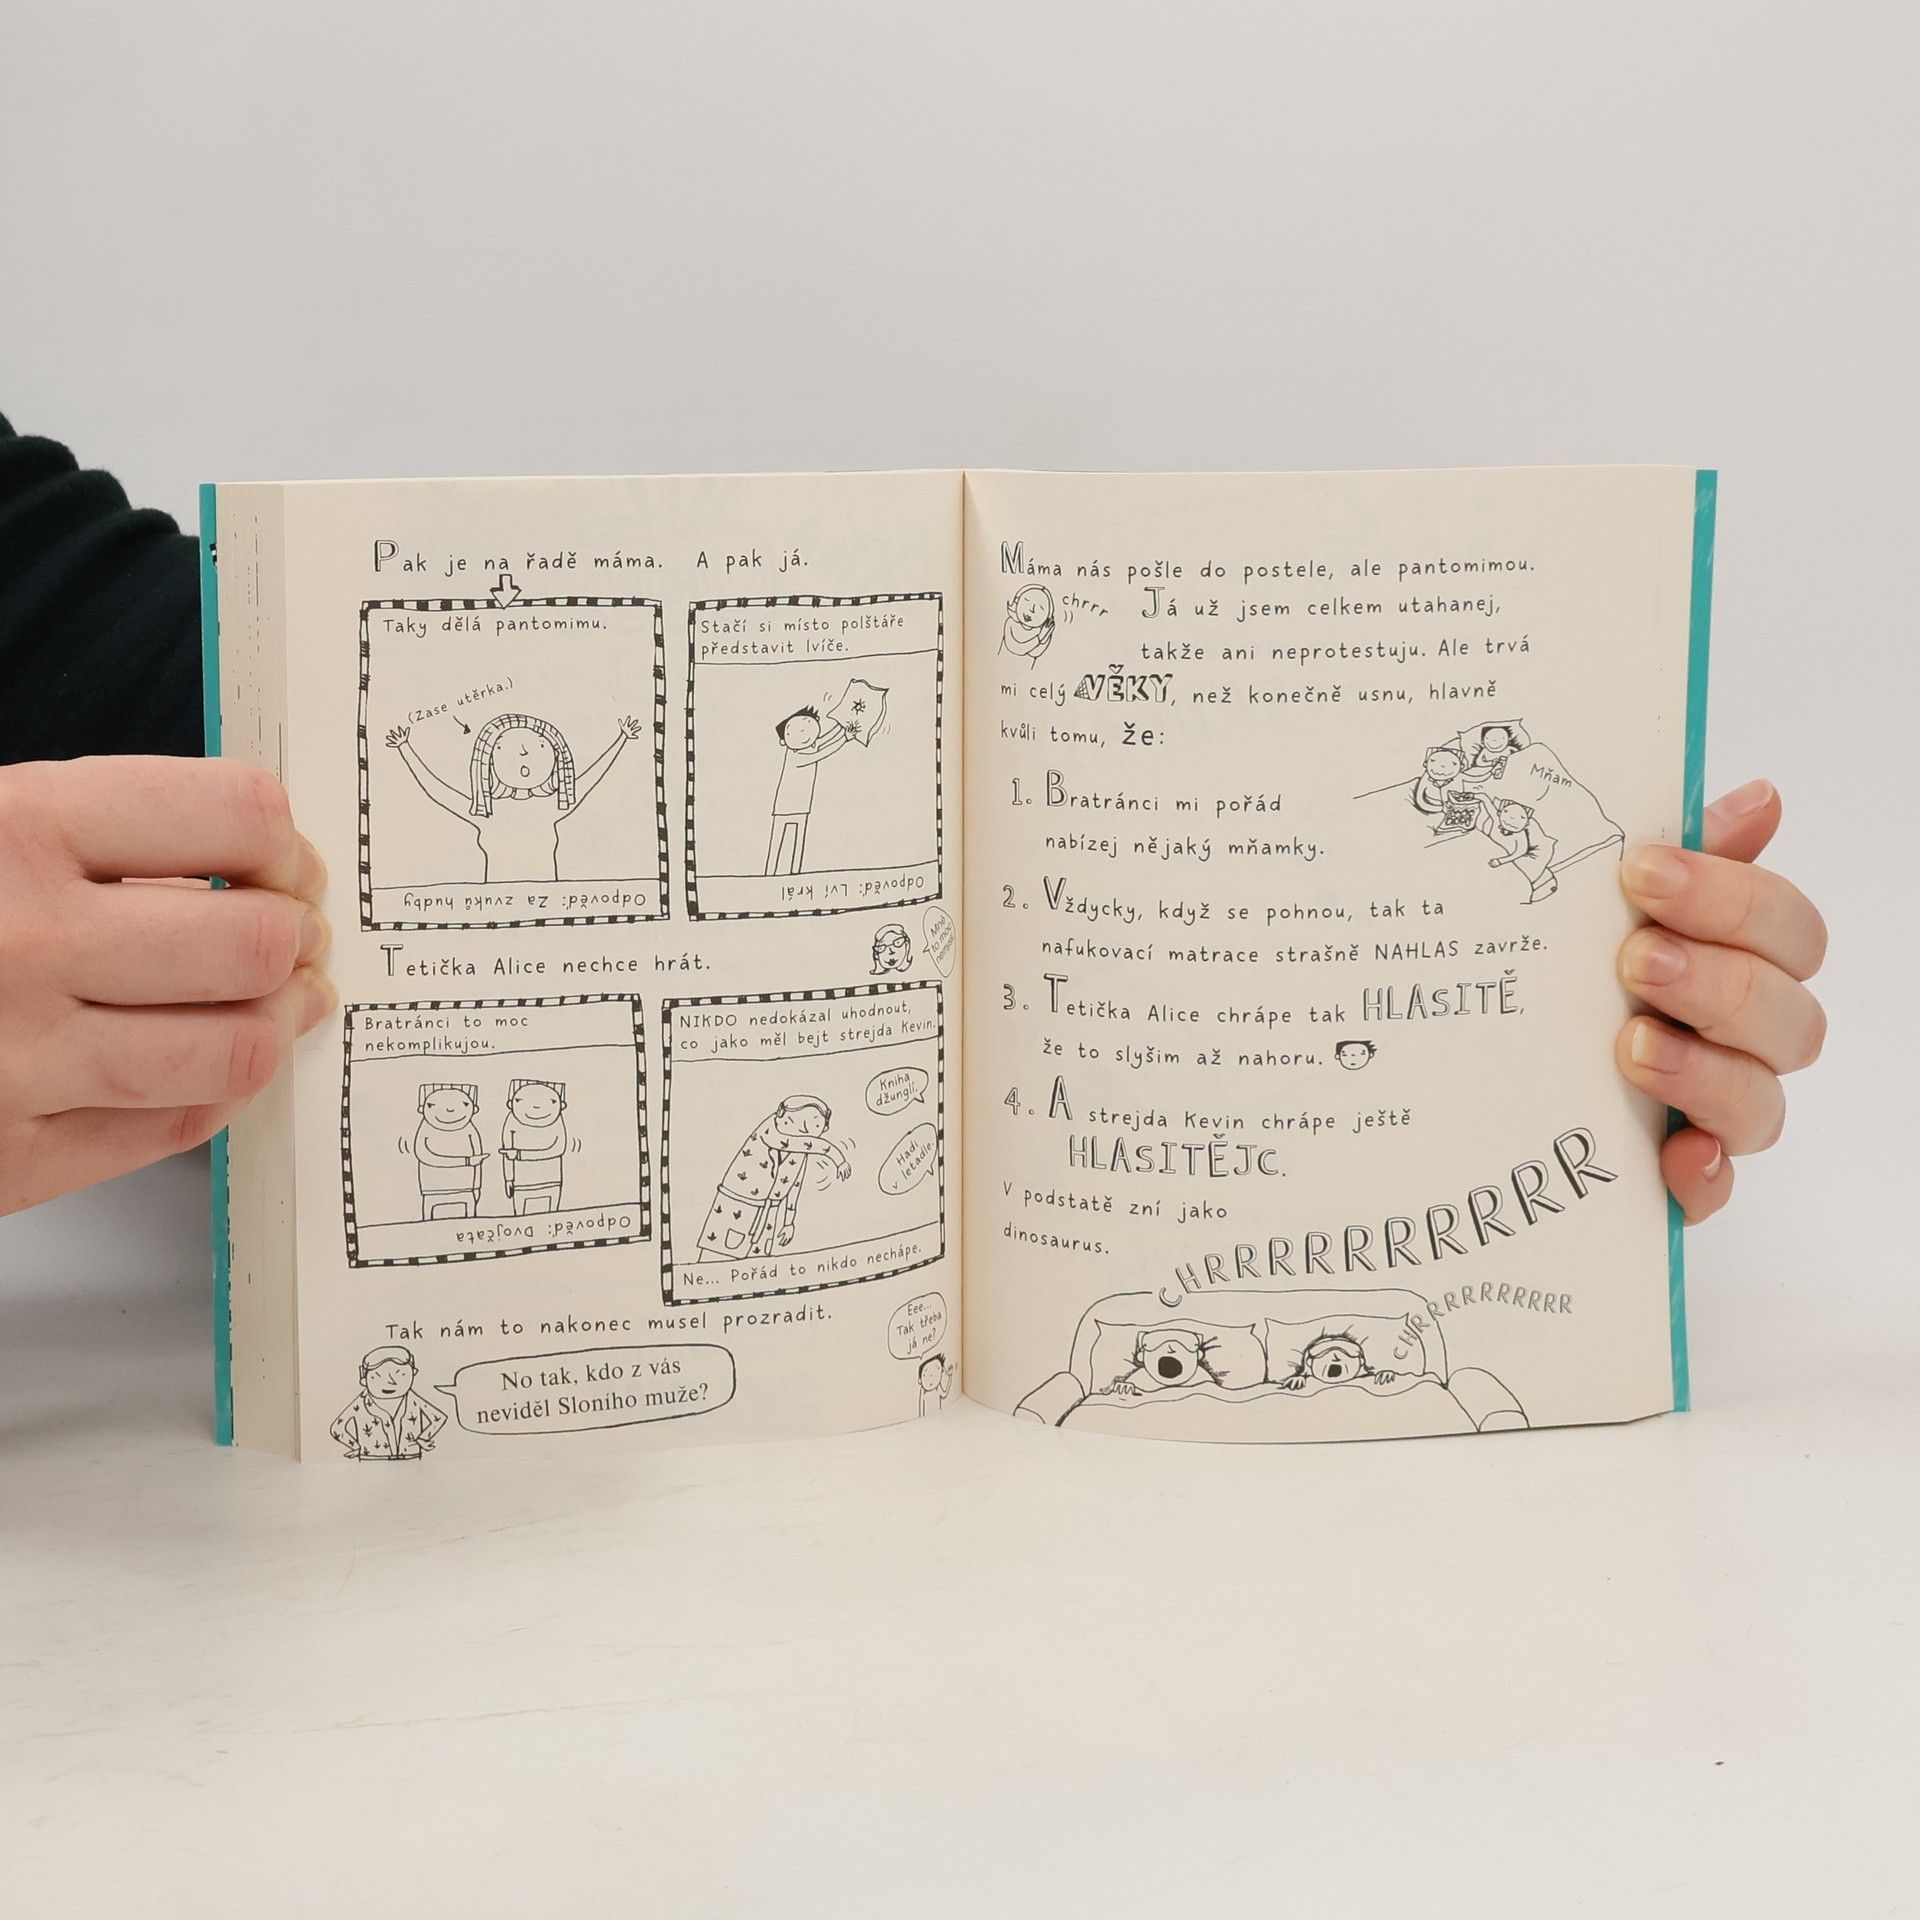 Pak je na řadě máma. A pak já.
Taky dělá pantomimu.
(Zase utěrka.)
Odpověď: Za zvuků hudby
Stačí si místo polštáře
představit lvíče.
Odpověď: Lví král
Tetička Alice nechce hrát.
Mně
to moc
nemyslí.
Bratránci to moc
nekomplikujou.
Odpověď: Dvojčata
NIKDO nedokázal uhodnout,
co jako měl bejt strejda Kevin.
Kniha
džunglí.
Hadi
v letadle.
Ne... Pořád to nikdo nechápe.
Tak nám to nakonec musel prozradit.
No tak, kdo z vás
neviděl Sloního muže?
Eee...
Tak třeba
já ne?
Máma nás pošle do postele, ale pantomimou.
chrrr
Já už jsem celkem utahanej,
takže ani neprotestuju. Ale trvá
mi celý VĚKY, než konečně usnu, hlavně
kvůli tomu, že:
1. Bratránci mi pořád
nabízej nějaký mňamky.
Mňam
2. Vždycky, když se pohnou, tak ta
nafukovací matrace strašně NAHLAS zavrže.
3. Tetička Alice chrápe tak HLASITĚ,
že to slyšim až nahoru.
4. A strejda Kevin chrápe ještě
HLASITĚJC.
V podstatě zní jako
dinosaurus.
CHRRRRRRRRRRR
CHRRRRRRRRRRR